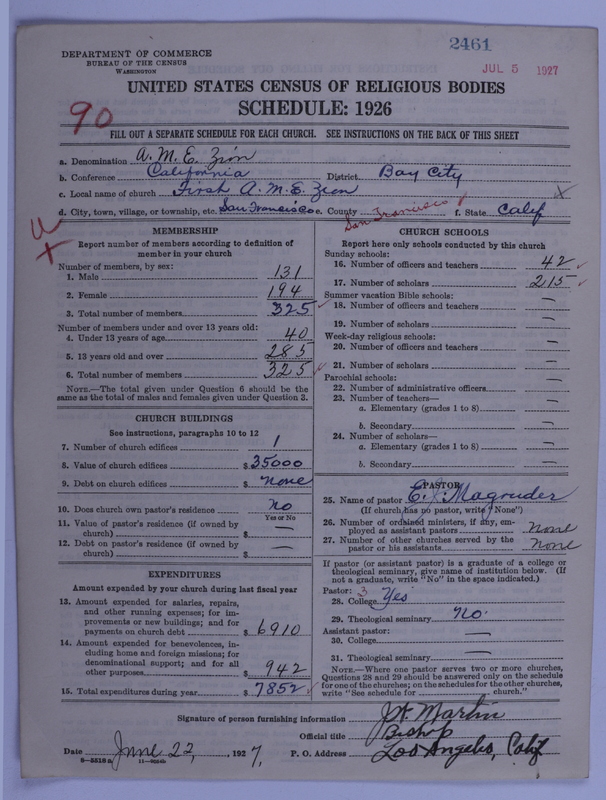 2461
DEPARTMENT OF COMMERCE
BUREAU OF THE CENSUS
WASHINGTON
JUL 5 1927
UNITED STATES CENSUS OF RELIGIOUS BODIES
SCHEDULE: 1926
90
FILL OUT A SEPARATE SCHEDULE FOR EACH CHURCH. SEE INSTRUCTIONS ON THE BACK OF THIS SHEET
a. Denomination A. M. E. Zion
b. Conference California District Bay City
c. Local name of church First A. M. E. Zion
d. City, town, village, or township, etc. San Francisco e. County San Francisco f. State Calif
MEMBERSHIP
Report number of members according to definition of
member in your church
Number of members, by sex:
1. Male 131
2. Female 194
3. Total number of members 325
Number of members under and over 13 years old:
4. Under 13 years of age 40
5. 13 years old and over 285
6. Total number of members 325
NOTE.—The total given under Question 6 should be the
same as the total of males and females given under Question 3.
CHURCH BUILDINGS
See instructions, paragraphs 10 to 12
7. Number of church edifices 1
8. Value of church edifices $35000
9. Debt on church edifices $ none
10. Does church own pastor's residence? no
Yes or No
11. Value of pastor's residence (if owned by
church) $ —
12. Debt on pastor's residence (if owned by
church) $ —
EXPENDITURES
Amount expended by your church during last fiscal year
13. Amount expended for salaries, repairs,
and other running expenses; for im-
provements or new buildings; and for
payments on church debt $ 6910
14. Amount expended for benevolences, in-
cluding home and foreign missions; for
denominational support; and for all
other purposes $ 942
15. Total expenditures during year $ 7852
CHURCH SCHOOLS
Report here only schools conducted by this church
Sunday schools:
16. Number of officers and teachers 42
17. Number of scholars 215
Summer vacation Bible schools:
18. Number of officers and teachers —
19. Number of scholars —
Week-day religious schools:
20. Number of officers and teachers —
21. Number of scholars —
Parochial schools:
22. Number of administrative officers —
23. Number of teachers—
a. Elementary (grades 1 to 8) —
b. Secondary —
24. Number of scholars—
a. Elementary (grades 1 to 8) —
b. Secondary —
PASTOR
25. Name of pastor E. J. Magruder
(If church has no pastor, write "None")
26. Number of ordained ministers, if any, em-
ployed as assistant pastors none
27. Number of other churches served by the
pastor or his assistants none
If pastor (or assistant pastor) is a graduate of a college or
theological seminary, give name of institution below. (If
not a graduate, write "No" in the space indicated.)
Pastor: 3
28. College Yes
29. Theological seminary no
Assistant pastor:
30. College —
31. Theological seminary —
NOTE.—Where one pastor serves two or more churches,
Questions 28 and 29 should be answered only on the schedule
for one of the churches; on the schedules for the other churches,
write "See schedule for church."
Signature of person furnishing information J. W. Martin
Official title Bishop
Date June 22, 1927, P. O. Address Los Angeles, Calif